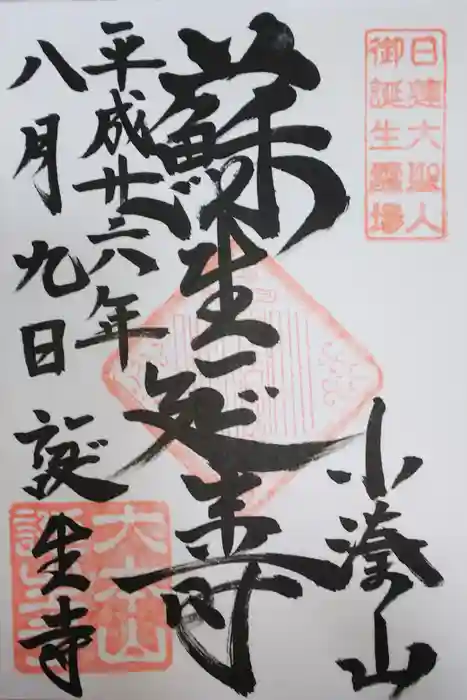 日蓮大聖人
御誕生霊場
小湊山
蘇生延寿
平成廿六年
八月九日 誕生寺
大本山
誕生寺